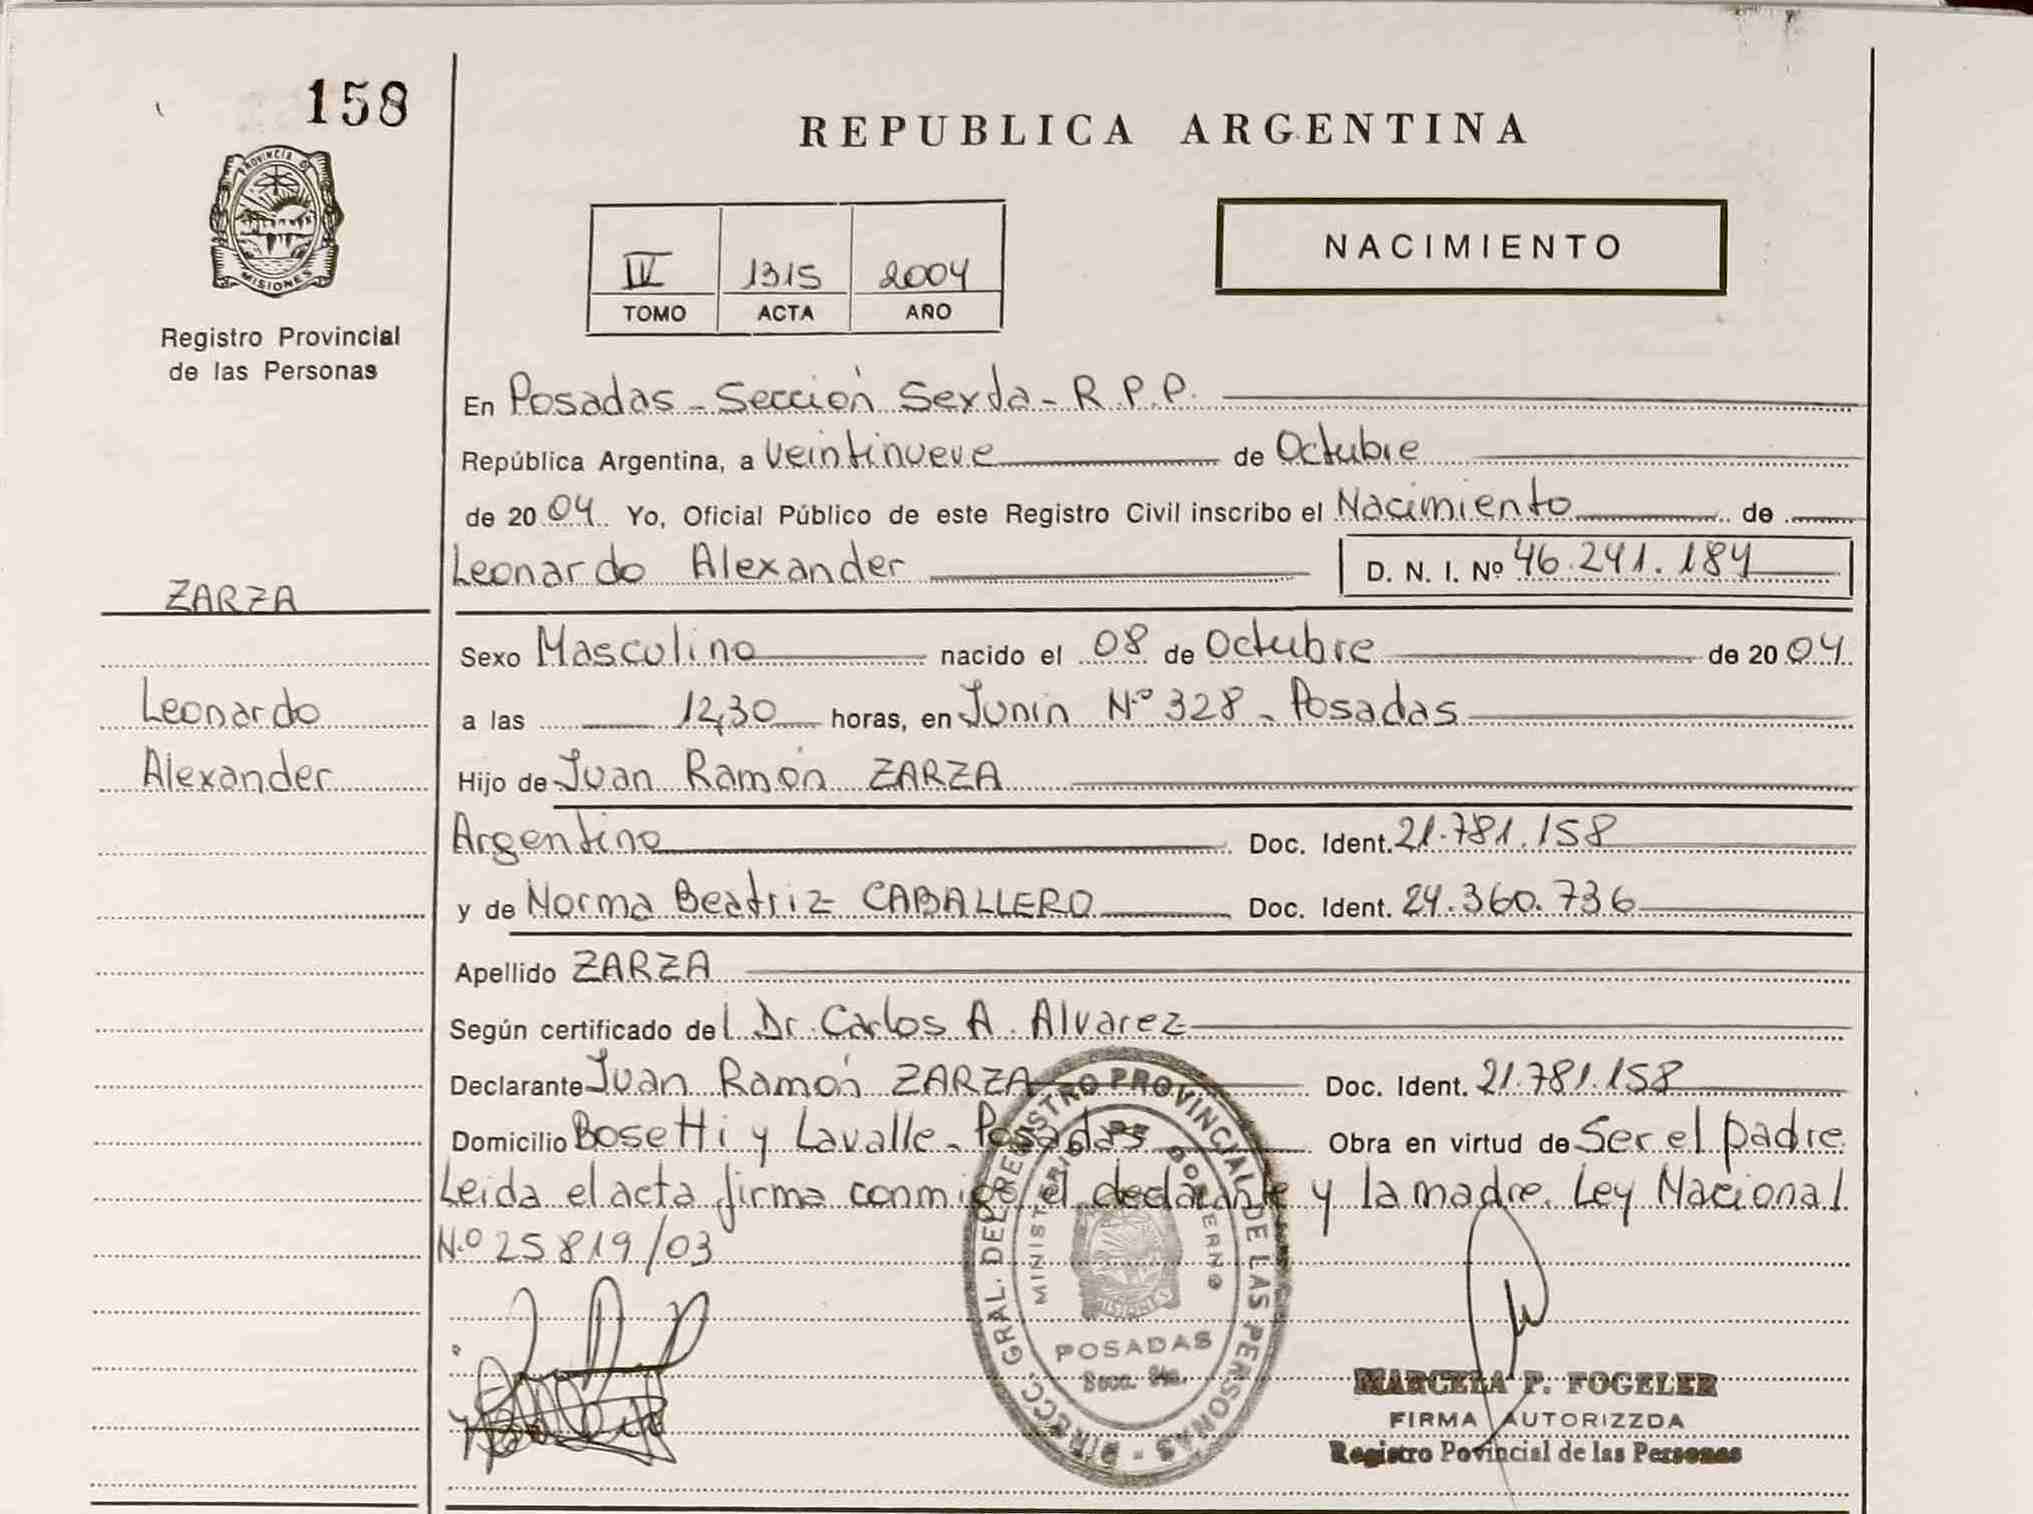 158
PROVINCIA D
MISIONES
Registro Provincial
de las Personas
ZARZA
Leonardo
Alexander
REPUBLICA ARGENTINA
IV 1315 2004
TOMO ACTA AÑO
NACIMIENTO
En Posadas - Sección Sexta - R.P.P.
República Argentina, a veintinueve de Octubre
de 2004 Yo, Oficial Público de este Registro Civil inscribo el Nacimiento de
Leonardo Alexander D. N. I. Nº 46.241.184
Sexo Masculino nacido el 08 de Octubre de 2004
a las 12,30 horas, en Junín Nº 328 - Posadas
Hijo de Juan Ramón ZARZA
Argentino Doc. Ident. 21.781.158
y de Norma Beatriz CABALLERO Doc. Ident. 24.360.736
Apellido ZARZA
Según certificado del Dr. Carlos A. Alvarez
Declarante Juan Ramón ZARZA Doc. Ident. 21.781.158
Domicilio Bosetti y Lavalle - Posadas Obra en virtud de Ser el padre
Leida el acta firma conmigo el declarante y la madre. Ley Nacional
N.º 25819/03
DIRECC. GRAL. DEL REGISTRO PROVINCIAL DE LAS PERSONAS
MINISTERIO DE GOBIERNO
MISIONES
POSADAS
Secc. 6ta.
MARCELA P. FOGELER
FIRMA AUTORIZZDA
Registro Povincial de las Personas